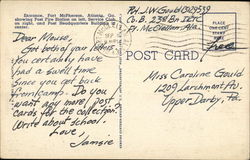 Entrance, Fort McPherson, Atlanta, Ga.,
showing Post Fire Station on left, Service Club
on right, and Post Headquarters Building
Pvt J.W. Gould
Co. B, 238 Bn IRTC
Ft. McClellan, Ala.
Free
POST CARD
Dear Mouse,
Got both of your letters.
You certainly have
had a swell time
since you got back
from camp. Do you
want any more post
cards for the collection?
Write about school.
Love,
Jamsie
Miss Caroline Gould
1209 Larchmont Av.
Upper Darby,
Pa.